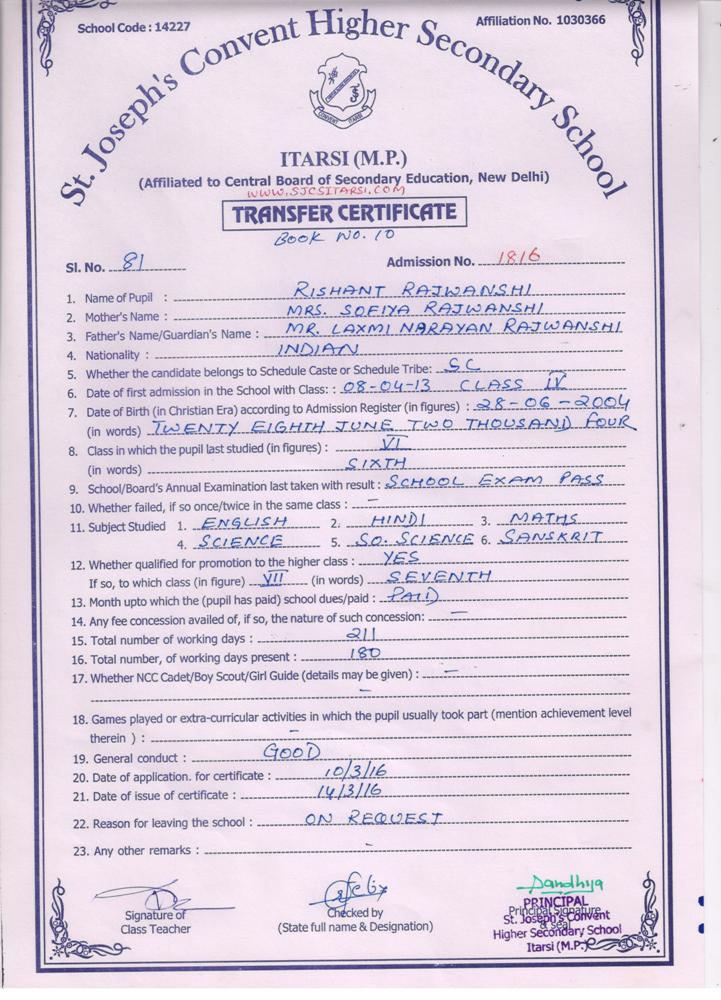 School Code : 14227
Affiliation No. 1030366
St. Joseph's Convent Higher Secondary School
CONVENT ITARSI
ITARSI (M.P.)
(Affiliated to Central Board of Secondary Education, New Delhi)
WWW.SJCSITARSI.COM
TRANSFER CERTIFICATE
BOOK NO. 10
Sl. No. 81 Admission No. 1816
1. Name of Pupil : RISHANT RAJWANSHI
2. Mother's Name : MRS. SOFIYA RAJWANSHI
3. Father's Name/Guardian's Name : MR. LAXMI NARAYAN RAJWANSHI
4. Nationality : INDIAN
5. Whether the candidate belongs to Schedule Caste or Schedule Tribe: SC
6. Date of first admission in the School with Class : 08-04-13 CLASS IV
7. Date of Birth (in Christian Era) according to Admission Register (in figures) : 28-06-2004
(in words) TWENTY EIGHTH JUNE TWO THOUSAND FOUR
8. Class in which the pupil last studied (in figures) : VI
(in words) SIXTH
9. School/Board's Annual Examination last taken with result : SCHOOL EXAM PASS
10. Whether failed, if so once/twice in the same class : —
11. Subject Studied 1. ENGLISH 2. HINDI 3. MATHS
4. SCIENCE 5. SO. SCIENCE 6. SANSKRIT
12. Whether qualified for promotion to the higher class : YES
If so, to which class (in figure) VII (in words) SEVENTH
13. Month upto which the (pupil has paid) school dues/paid : PAID
14. Any fee concession availed of, if so, the nature of such concession: —
15. Total number of working days : 211
16. Total number, of working days present : 180
17. Whether NCC Cadet/Boy Scout/Girl Guide (details may be given) : —
—
18. Games played or extra-curricular activities in which the pupil usually took part (mention achievement level
therein ) : —
19. General conduct : GOOD
20. Date of application. for certificate : 10/3/16
21. Date of issue of certificate : 14/3/16
22. Reason for leaving the school : ON REQUEST
23. Any other remarks : -
Signature of
Class Teacher
Checked by
(State full name & Designation)
Sandhya
PRINCIPAL
Principal Signature
& Seal
St. Joseph's Convent
Higher Secondary School
Itarsi (M.P.)